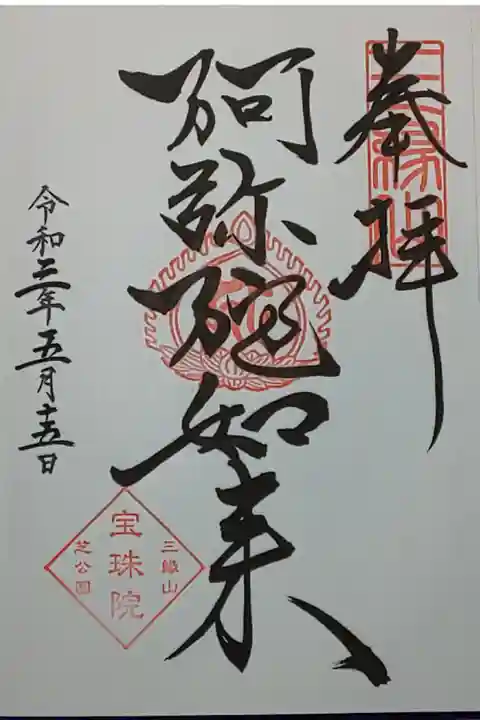 奉拝
三縁山
阿弥陀如来
三縁山
宝珠院
芝公園
令和三年五月十五日